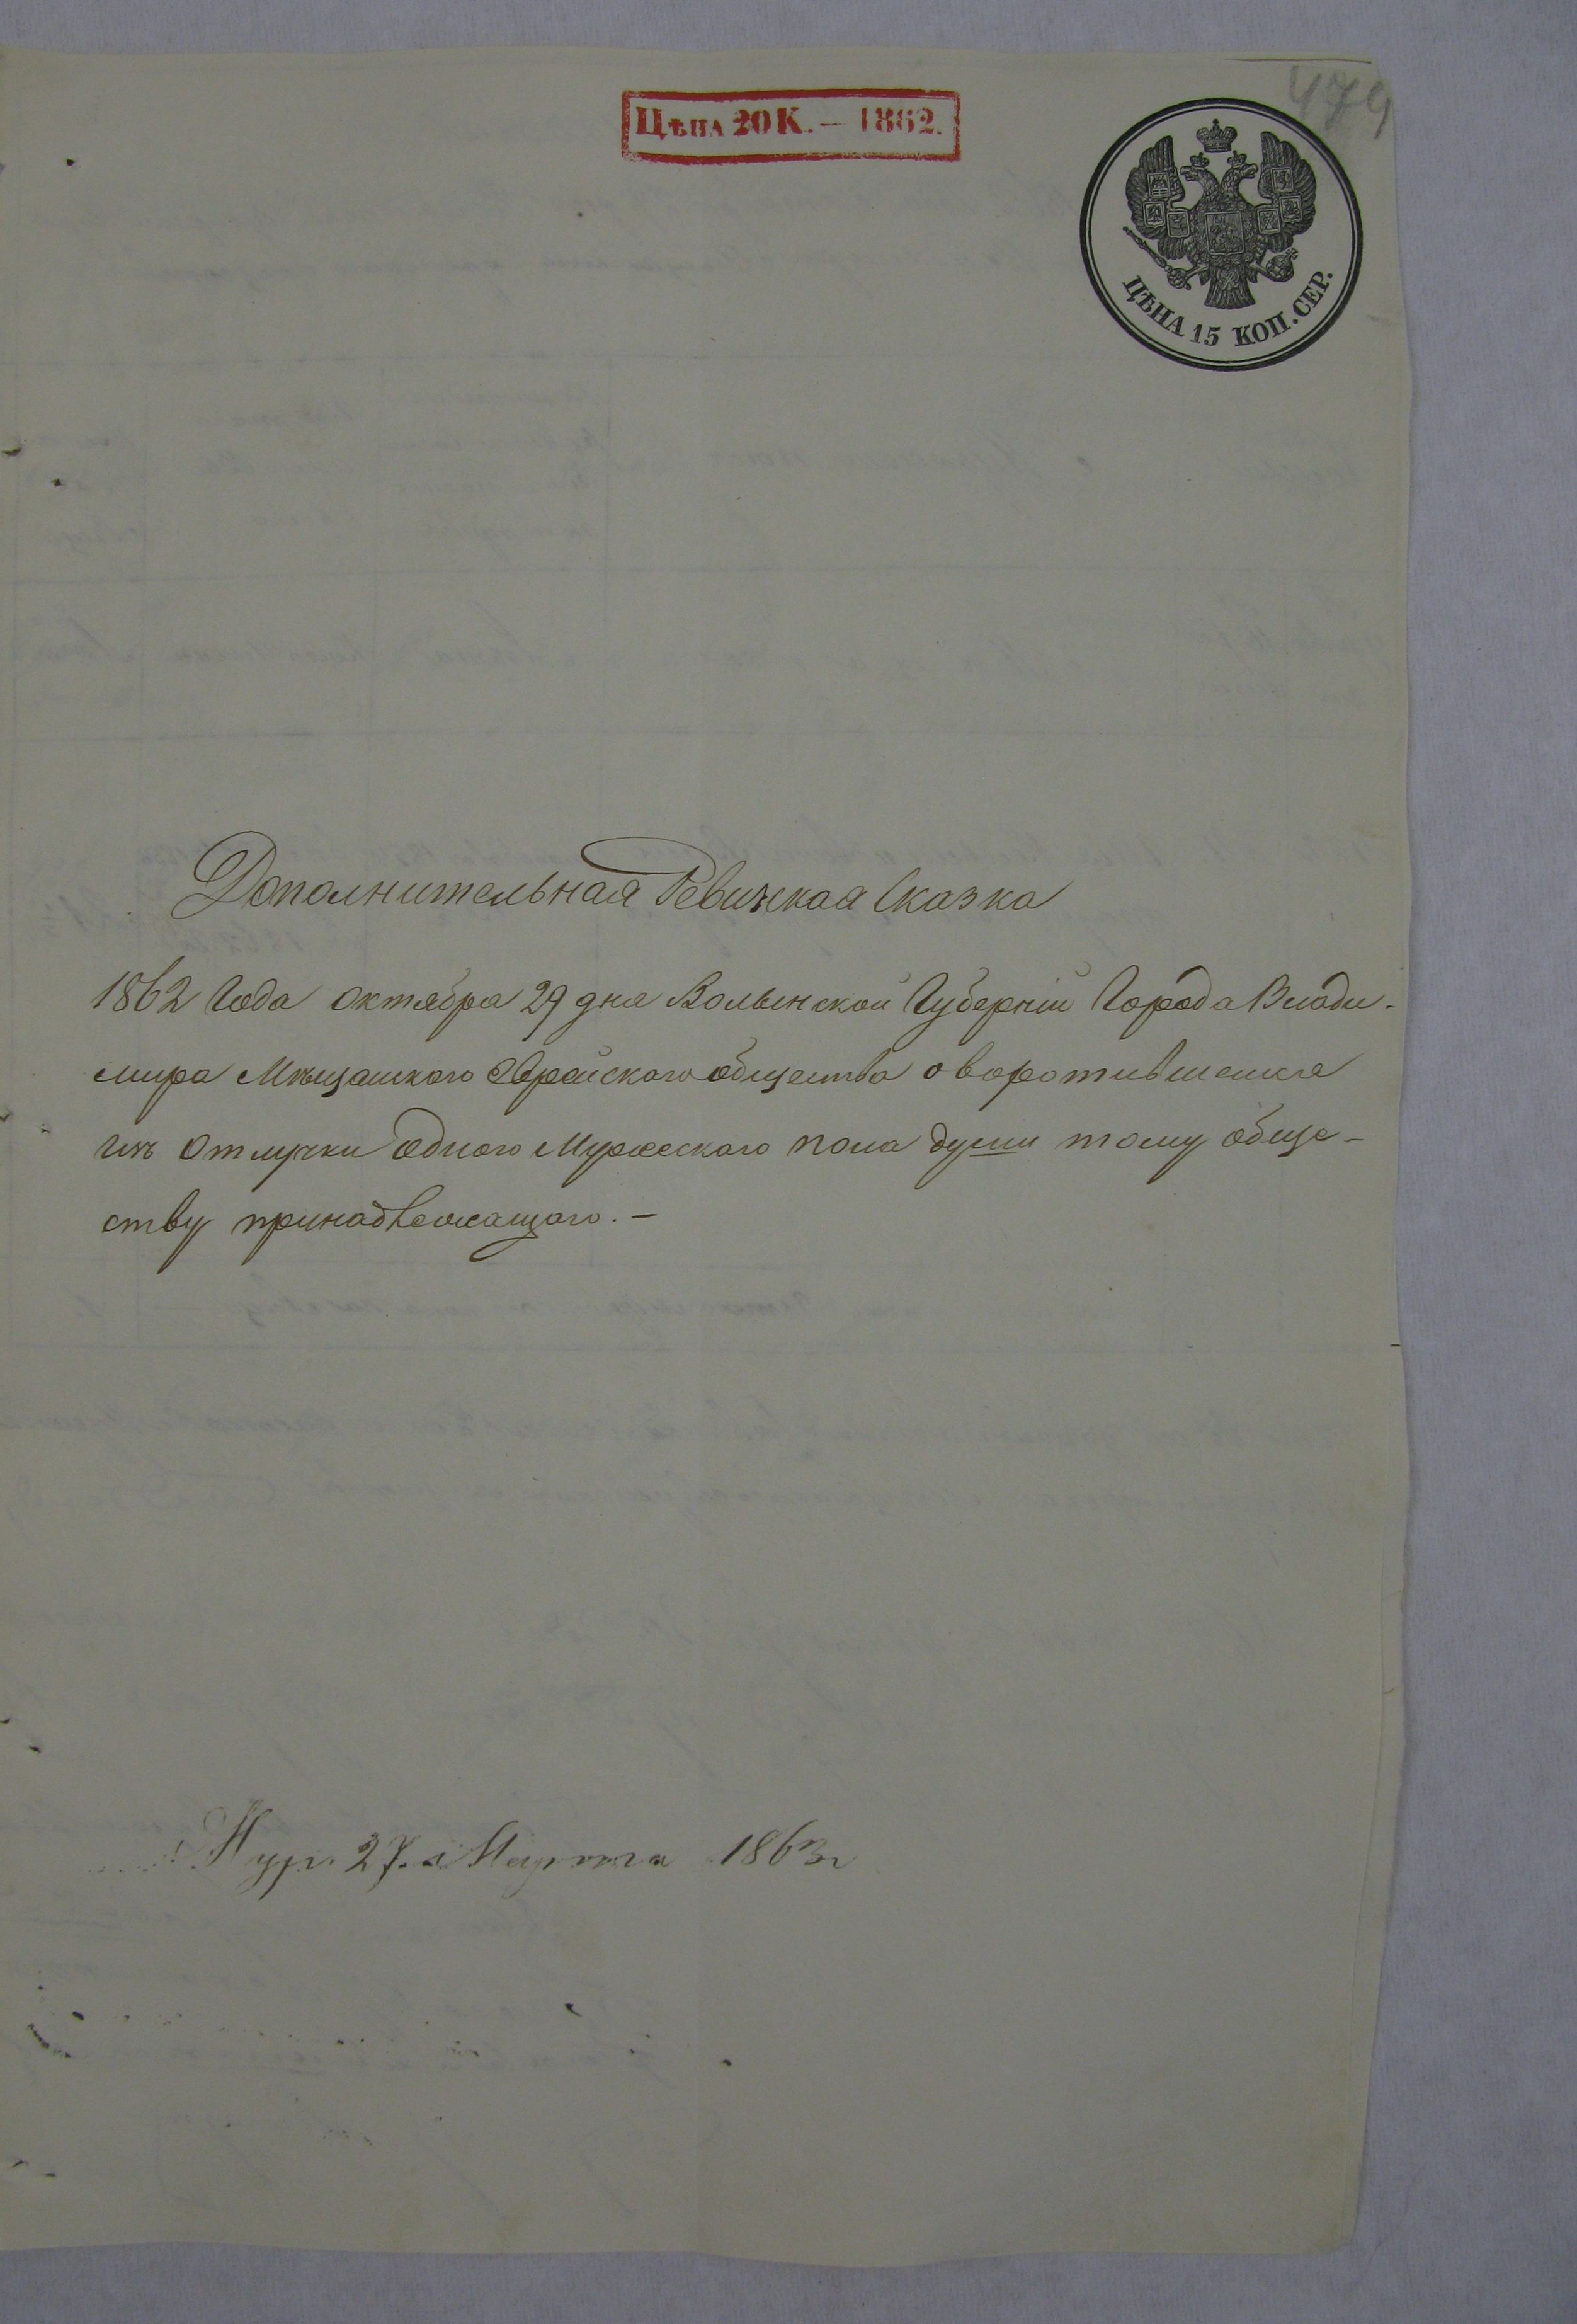 479
Цѣна 20 К. — 1862.
ЦѢНА 15 КОП. СЕР.
Дополнительная Ревизская Сказка
1862 Года октября 29 дня Волынской Губерніи Города Влади-
мира Мѣщанского Еврейского общества о воротившемся
изъ отлучки одного Мужеского пола души тому обще-
ству принадлежащаго. —
27. Марта 1863 г